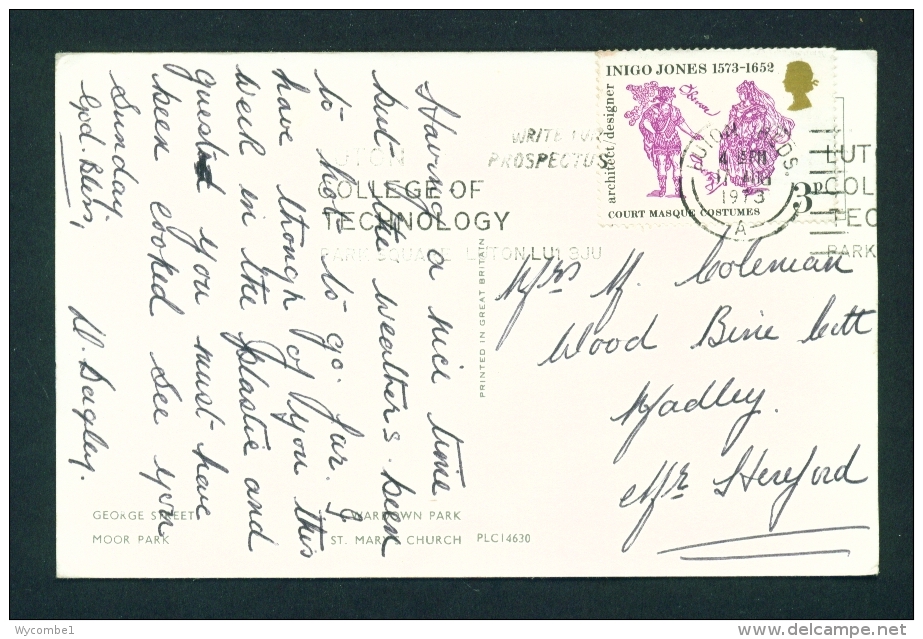 INIGO JONES 1573-1652
architect/designer
COURT MASQUE COSTUMES
3p
LUTON BEDS.
4 PM
AUG
1973
A
WRITE FOR
PROSPECTUS
LUTON
COLLEGE OF
TECHNOLOGY
PARK SQUARE LUTON LU1 3JU
LUT
COL
TEC
PARK
Having a nice time
but the weathers been
to hot to go far. I
have though of you this
week in the plastic and
guest you must have
been cooked see you
Sunday.
God. Bless,
D. Bagley.
PRINTED IN GREAT BRITAIN
Mrs M. Coleman
Wood Bine Cott
Madley.
Nr Hereford
GEORGE STREET WARDOWN PARK
MOOR PARK ST. MARY'S CHURCH PLC14630
Wycombe1
http://www.delcampe.net